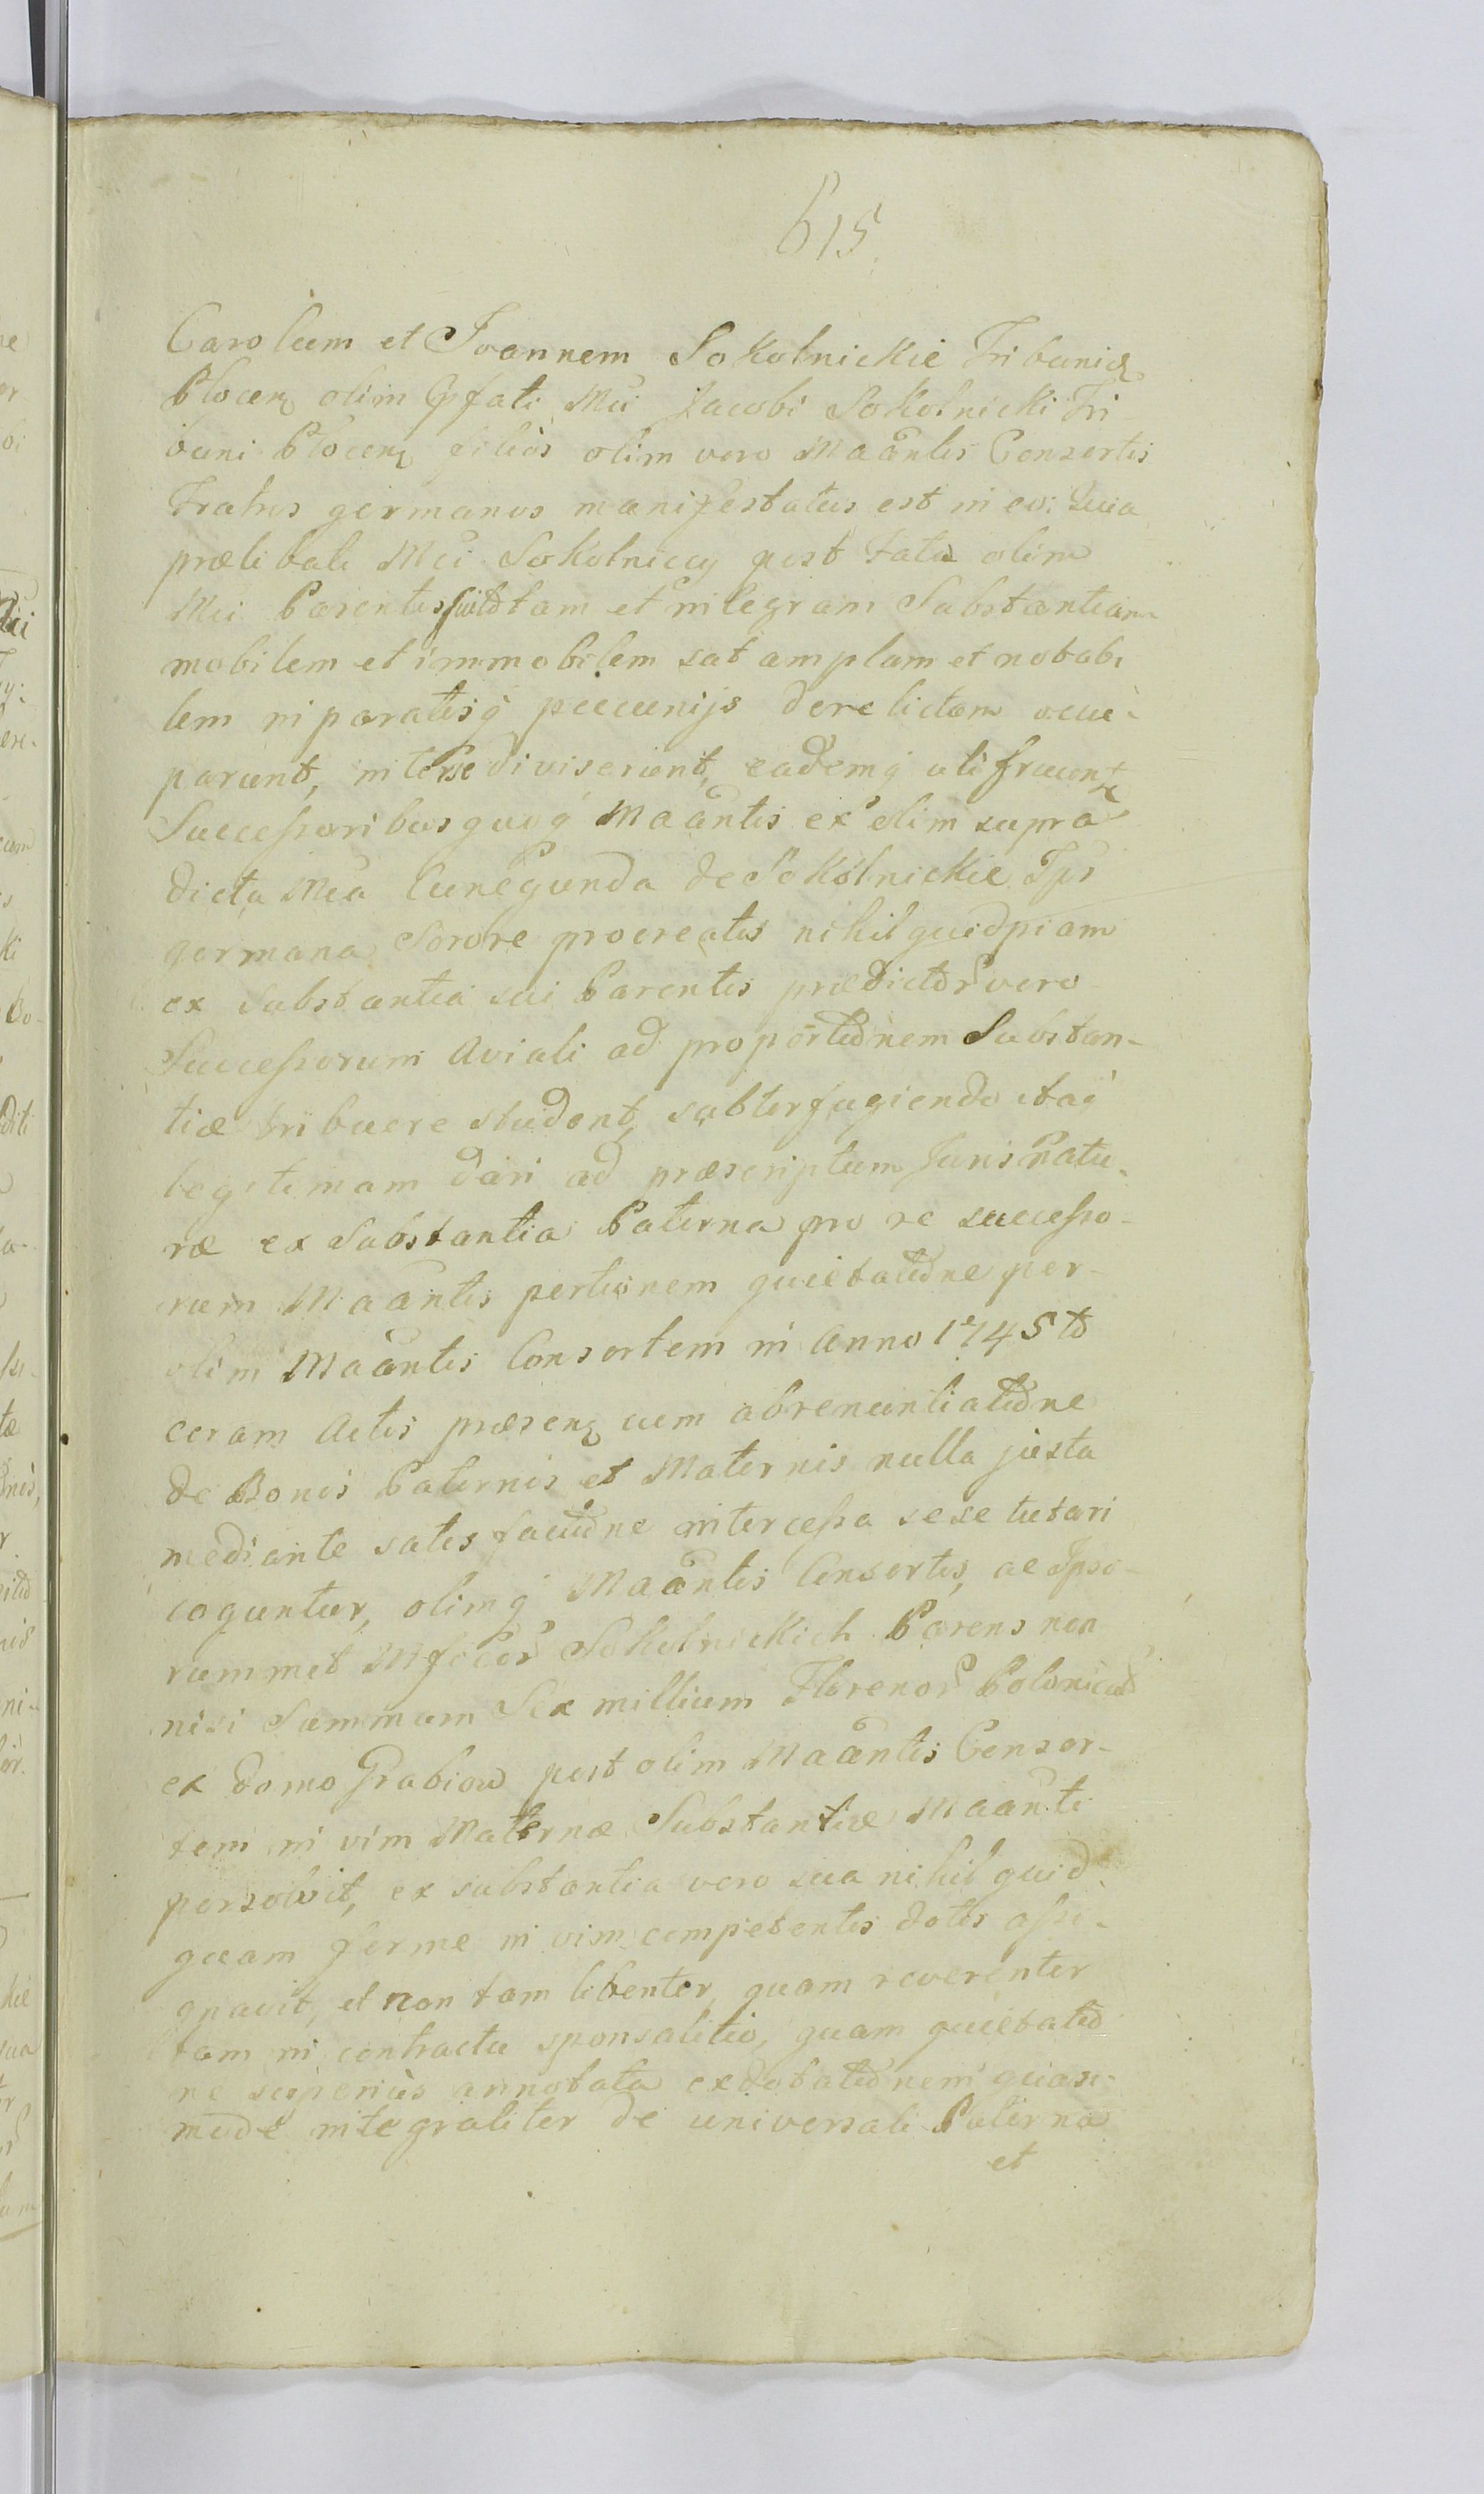 615
Carolum et Joannem Sokolnickie Tribunid
Plocen olim Pfati Mci Jacobi Sokolnicki Tri
buni Plocen filios olim vero Maantis Consortis
Fratres germanos manifestatus est in eo: Quia
prælibati Mci Sokolniccy post fata olim
Mci Parentis sui totam et integram Substantiam
mobilem et immobilem sat amplam et notabi
lem in paratisq pecunijs derelictam occu-
parunt, inter se diviserunt, eademq uti fruuntr
Successoribus quoq Maantis ex olim supra
dicta Mca Cunegunda de Sokolnickie Ips
germana Sorore procreatis nihil quidpiam
ex Substantia sui Parentis prædictor vero
Successorum Aviali ad proportionem Substan-
tiæ tribuere student, subterfugiendo itaq
legitimam dari ad præscriptum Juris Natu-
ræ ex Substantia Paterna pro se successo-
rum Maantis portionem quietatione per
olim Maantis Consortem in Anno 1745to
coram Actis præsen cum abrenuntiatione
de Bonis Paternis et Maternis nulla justa
mediante satisfactione intercessa sese tutari
coguntur, olimq Maantis Consortis, ac Ipso-
rummet Mfcor Sokolnickich Parens non
nisi Summam Sex millium Florenor Polonical
ex domo Grabiow post olim Maantis Consor-
tem in vim Maternæ Substantiæ Maanti
persolvit, ex substantia vero sua nihil quid-
quam ferme in vim competentis dotis assi-
gnavit, et non tam libenter, quam reverenter
tam in contractu sponsalitio, quam quietatio
ne superius annotata exdotationem quasi
mode integraliter de universali Paterna
et